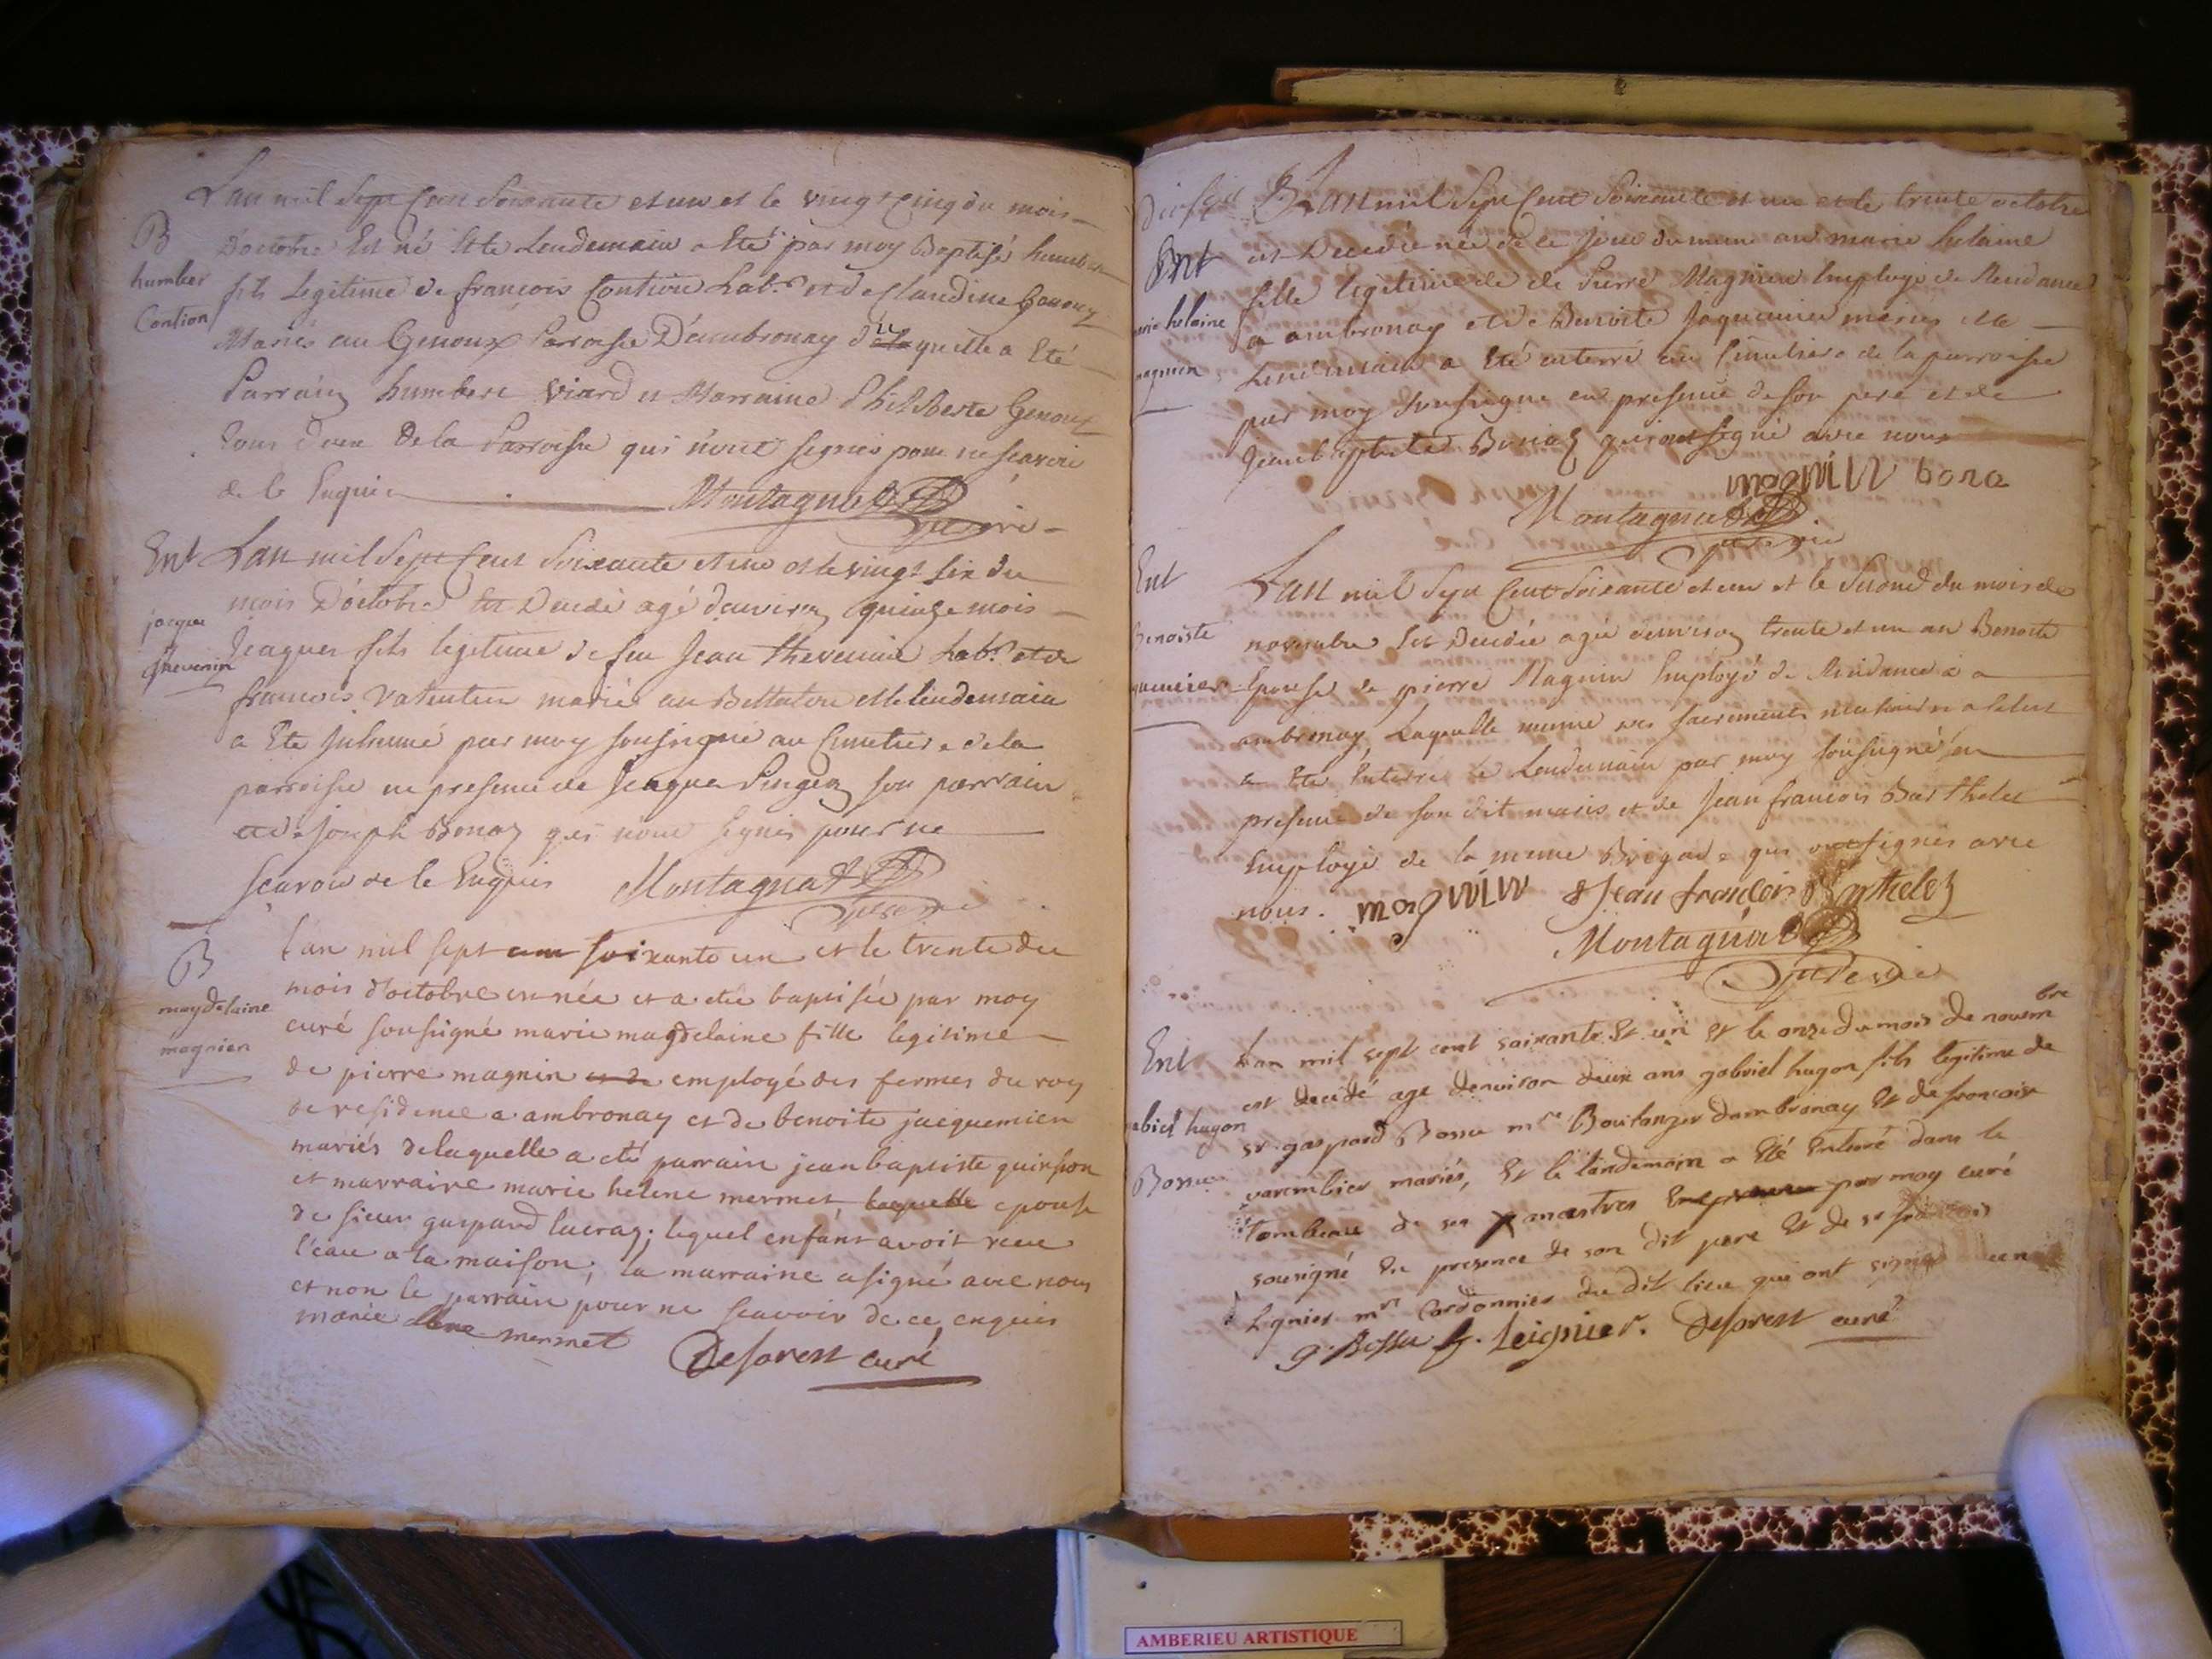 Lan mil Sept Cent Soixante et un et le vingt Cinq du mois
B
D'octobre Est né Et le Lendemain a Eté par moy Baptisé humbert
humber
Contion
fils Legitime de francois Contion Lab.r et de Claudine
Mariés au Genoux Parroisse D'ambronay du quelle a Eté
Parrain humbert Viard et Marraine Philiberte Genoux
tous deux de la Parroisse qui n'ont signés pour ne scavoir
de le Enquis Montagnat
vicaire
Ent
Lan mil Sept Cent Soixante et un et le vingt six du
mois D'octobre Est Decedé agé denviron quinze mois
jacque
thevenin
Jeaques fils legitime de feu Jean thevenin Lab.r et de
francoise Vatentin mariés au Bettaton et le lendemain
a Eté Inhumé par moy soussigné au Cimetiere de la
parroisse en presence de Jeaques Pingeon son parrain
et de Joseph Bonaz qui n'ont signés pour ne
scavoir de le Enquis Montagnat
vicaire
B
magdelaine
magnien
lan mil sept cent soixante un et le trente du
mois d'octobre est née et a eté baptisée par moy
curé soussigné marie magdelaine fille legitime
de pierre magnin et de employé des fermes du roy
de residence a ambronay et de benoite jacquemien
mariés delaquelle a eté parrain jean baptiste quinson
et marraine marie helene mermet, laquelle epouse
de sieur gaspard lucraz; lequel enfant avoit receu
l'eau a la maison; la marraine a signé avec nous
et non le parrain pour ne scavoir de ce enquis
marie mermet
Deforest curé
Lan mil Sept Cent Soixante et un et le trente octobre
Ent
est Decedée née de ce Jour du meme an marie helaine
marie helaine
magnien
fille legitime de de Pierre Magnien Employé de Residance
a ambronay et de Benoite Jaquemier mariés et le
Lendemain a Eté enterré au Cimetiere de la parroisse
par moy soussigné en presence de son pere et de
Jean baptiste Bonaz qui ont signé avec nous
magnin bona
Montagnat
vicaire
Ent
benoiste
Lan mil Sept Cent Soixante et un et le Second du mois de
novembre Est Decedée agée denviron trente et un an Benoite
Epouse de pierre Magnin Employé de Residance a
ambronay Laquelle munie des sacrements
a Eté Enterré le Lendemain par moy soussigné en
presence de son dit maris et de Jean francois Barthelet
Employé de la meme Brigade qui ont signés avec
nous. magnin Jean francois Barthelet
Montagnat
vicaire
Ent
gabiel hugon
Bossu
Lan mil sept cent soixante Et un Et le onze du mois de novembre
est decedé age denviron deux ans gabriel hugon fils legitime de
sr gaspard Bossu mre Boulanger dambronay Et de francoise
varembier mariés, Et le landemain a Eté Enterré dans le
tombeau de ses ancestres En presence par moy curé
sousigné En presence de son dit pere Et de sr francois
Legnier mre Cordonnier du dit lieu qui ont signés
g. Bossu f. Leignier. Deforest curé
AMBERIEU ARTISTIQUE